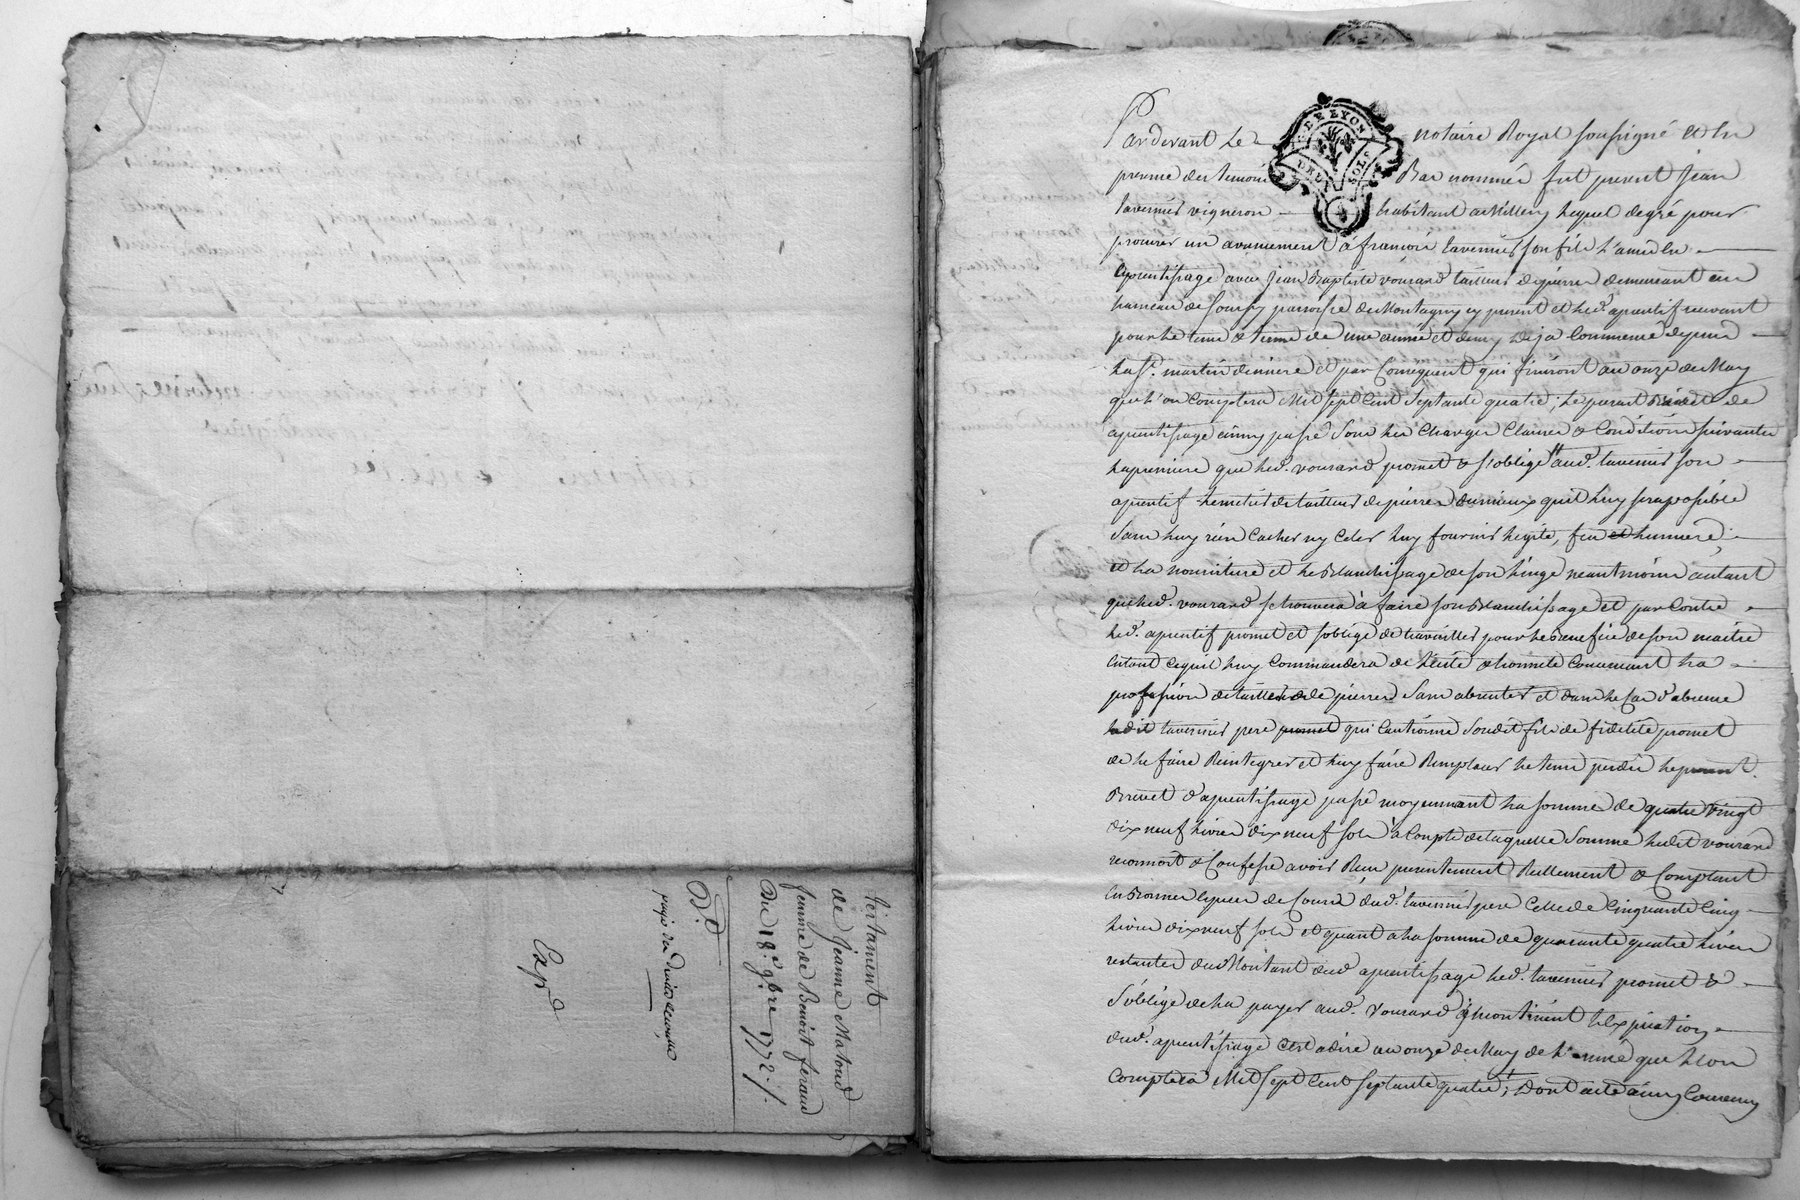 Testament
de Jeanne Matoud
femme de Benoit feraud
Du 18.e 9bre 1772 ./.
Exp.d
DE LYON
DEUX SOLS
Pardevant Le notaire Royal soussigné et en
presence des temoins Bas nommés fut present Jean
tavernier vigneron habitant a Millery lequel de gré pour
procurer un avancement à francois tavernier son fils l'a mis en
aprentissage avec Jean Baptiste vourard tailleur de pierres demeurant au
hameau de sourzy parroisse de Montagny cy present et led. aprentif recevant
pour le tems & terme de une année et demy deja Commencé depuis
la St. martin derniere et par Consequent qui finiront au onze de May
que l'on Comptera Mil sept Cent Septante quatre; le present Brevet de
aprentissage ainsy passé sous les Charges Clauses & Conditions suivantes
la premiere que led. vourard promet & s'oblige aud. tavernier son
aprentif le metier de tailleur de pierres du mieux qu'il luy sera possible
sans luy rien Cacher ny Celer luy fournir le gite, feu et lumiere
et la nourriture et le Blanchissage de son linge neantmoins autant
que led. vourard se trouvera à faire son Blanchissage et par Contre
led. aprentif promet et s'oblige de travailler pour le Benefice de son maitre
en tout ce qu'il luy Commandera de licite & honnete Concernant la
profession de tailleur de pierres sans absenter et dans le Cas d'absence
ledit tavernier pere promet qui Cautionne sondit fils de fidelité promet
de le faire Reintegrer et luy faire Remplacer le tems perdu le present
Brevet d'aprentissage passé moyennant la somme de quatre vingt
dix neuf livres dix neuf sols a Compte de laquelle somme ledit vourard
reconnoit & Confesse avoir Reçu presentement Reellement & Comptant
en Bonnes especes de Cours dud. tavernier pere Celle de Cinquante Cinq
livres dix neuf sols et quant a la somme de quarante quatre livres
restantes du Montant dud. aprentissage led. tavernier promet &
s'oblige de la payer aud. vourard l'Expiration
dud. aprentissage c'est a dire au onze de May de l'année que l'on
Comptera Mil sept Cent septante quatre; Dont acte ainsy Convenu